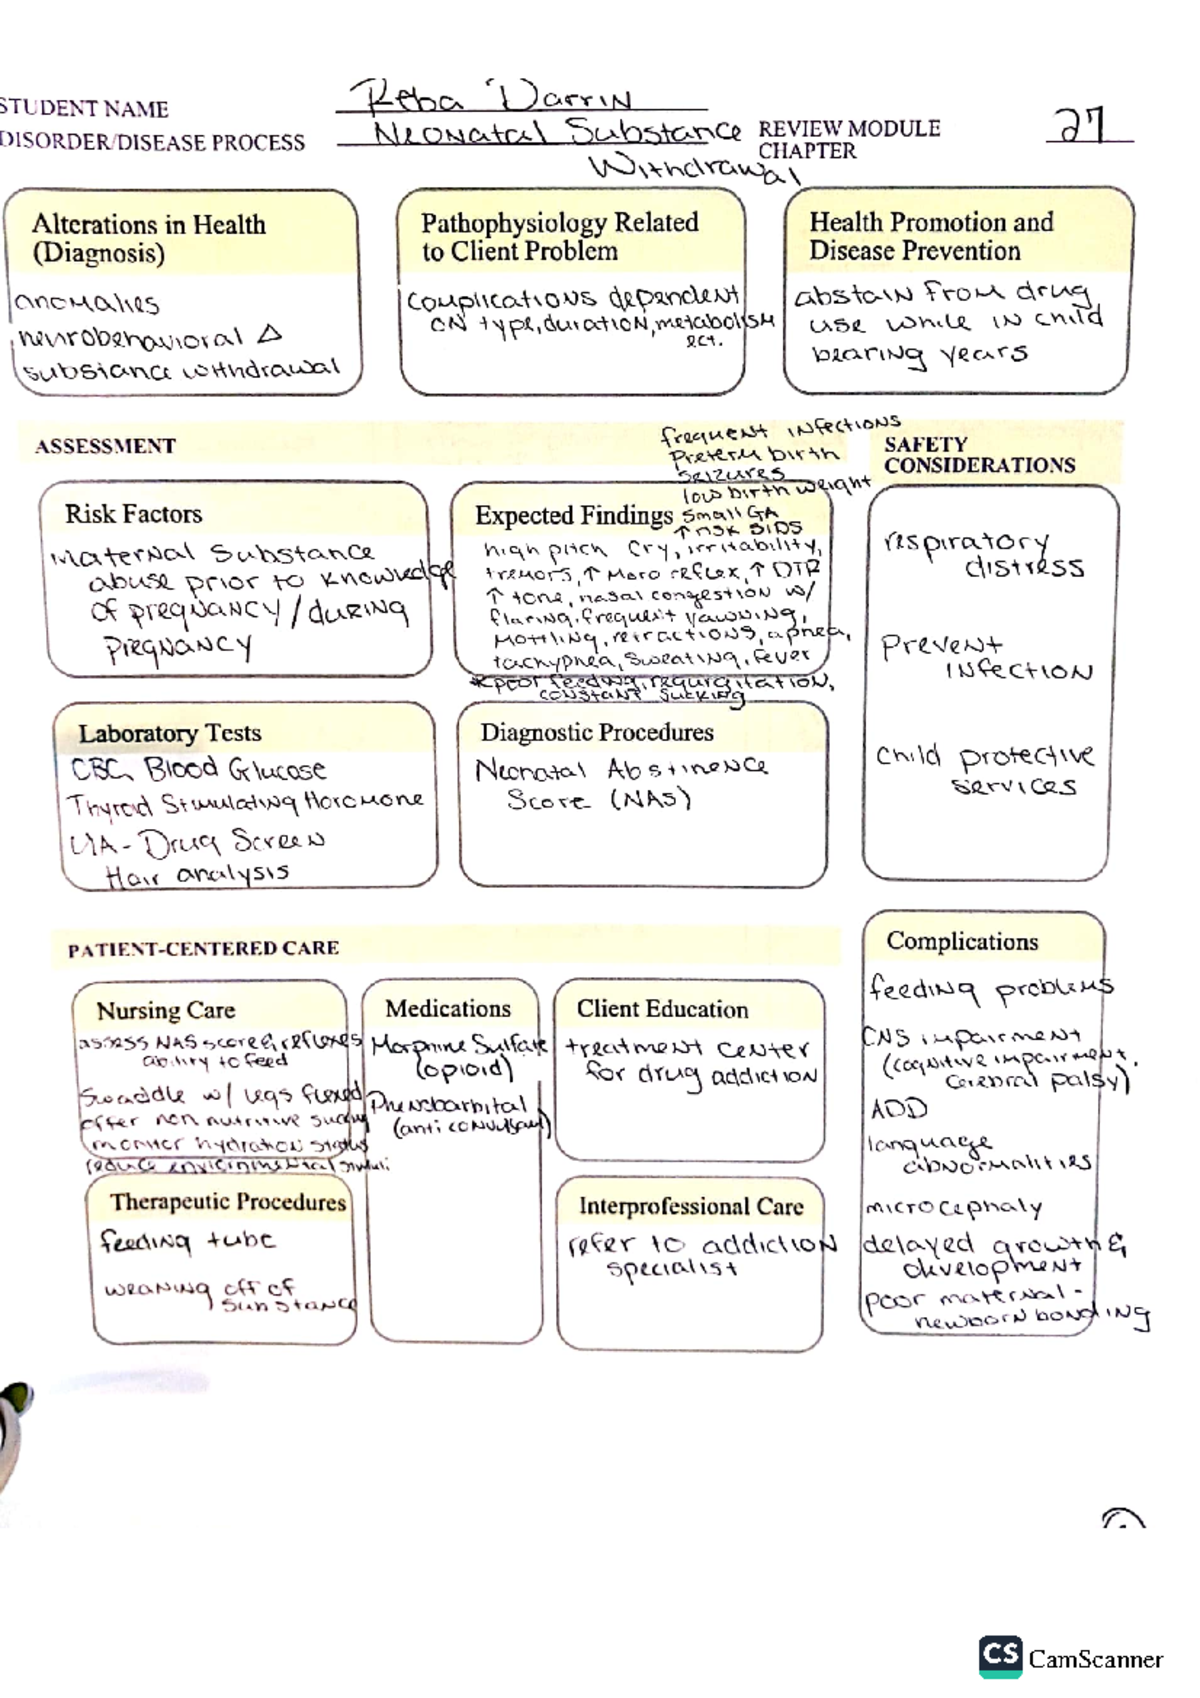 STUDENT NAME Reba Darrin
DISORDER/DISEASE PROCESS Neonatal Substance Withdrawal
REVIEW MODULE CHAPTER 27
Alterations in Health
(Diagnosis)
anomalies
neurobehavioral Δ
substance withdrawal
Pathophysiology Related
to Client Problem
complications dependent
on type, duration, metabolism
ect.
Health Promotion and
Disease Prevention
abstain from drug
use while in child
bearing years
ASSESSMENT
Risk Factors
Maternal Substance
abuse prior to knowledge
of pregnancy/during
Pregnancy
Expected Findings
frequent infections
Preterm birth
seizures
low birth weight
Small GA
↑ risk SIDS
high pitch cry, irritability,
tremors, ↑ Moro reflex, ↑ DTR
↑ tone, nasal congestion w/
flaring, frequent yawning,
Mottling, retractions, apnea,
tachypnea, sweating, fever
*poor feeding, regurgitation,
constant sucking
SAFETY
CONSIDERATIONS
respiratory
distress
Prevent
infection
Child protective
services
Laboratory Tests
CBC, Blood Glucose
Thyroid Stimulating Horomone
UA - Drug Screen
Hair analysis
Diagnostic Procedures
Neonatal Abstinence
Score (NAS)
PATIENT-CENTERED CARE
Nursing Care
assess NAS score & reflexes
ability to feed
Swaddle w/ legs flexed
offer non nutritive
monitor hydration status
reduce environmental stimuli
Medications
Morphine Sulfate
(opioid)
Phenobarbital
(anti convulsant)
Client Education
treatment center
for drug addiction
Therapeutic Procedures
feeding tube
weaning off of
substance
Interprofessional Care
refer to addiction
specialist
Complications
feeding problems
CNS impairment
(cognitive impairment,
cerebral palsy)
ADD
language
abnormalities
microcephaly
delayed growth &
development
poor maternal-
newborn bonding
CS CamScanner